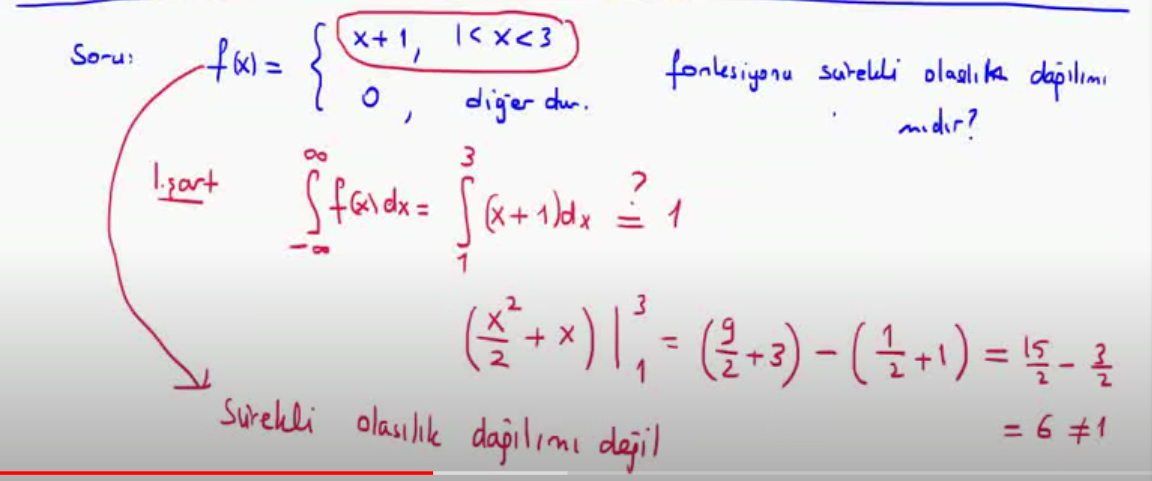 Soru: f(x) = { x+1, 1<x<3 fonksiyonu sürekli olasılık dağılımı
0, diğer dur. mıdır?
1.şart ∫_{-∞}^{∞} f(x)dx = ∫_{1}^{3} (x+1)dx ?= 1
(x²/2 + x) |_{1}^{3} = (9/2 + 3) - (1/2 + 1) = 15/2 - 3/2
= 6 ≠ 1
Sürekli olasılık dağılımı değil